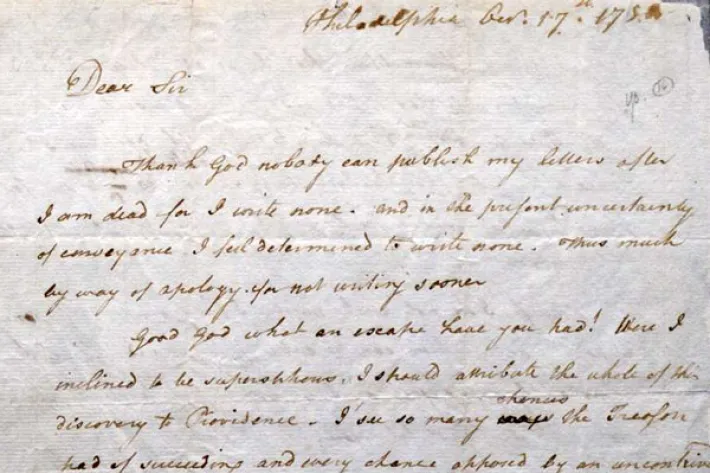 Philadelphia Oct. 17th. 178
yo. 16
Dear Sir
Thank God nobody can publish my letters after
I am dead for I write none. and in the present uncertainty
of conveyance I feel determined to write none. Thus much
by way of apology for not writing sooner
Good God what an escape have you had! Were I
inclined to be superstitious, I should attribute the whole of this
discovery to Providence. I see so many chances the Treason
had of succeeding and every chance opposed by an